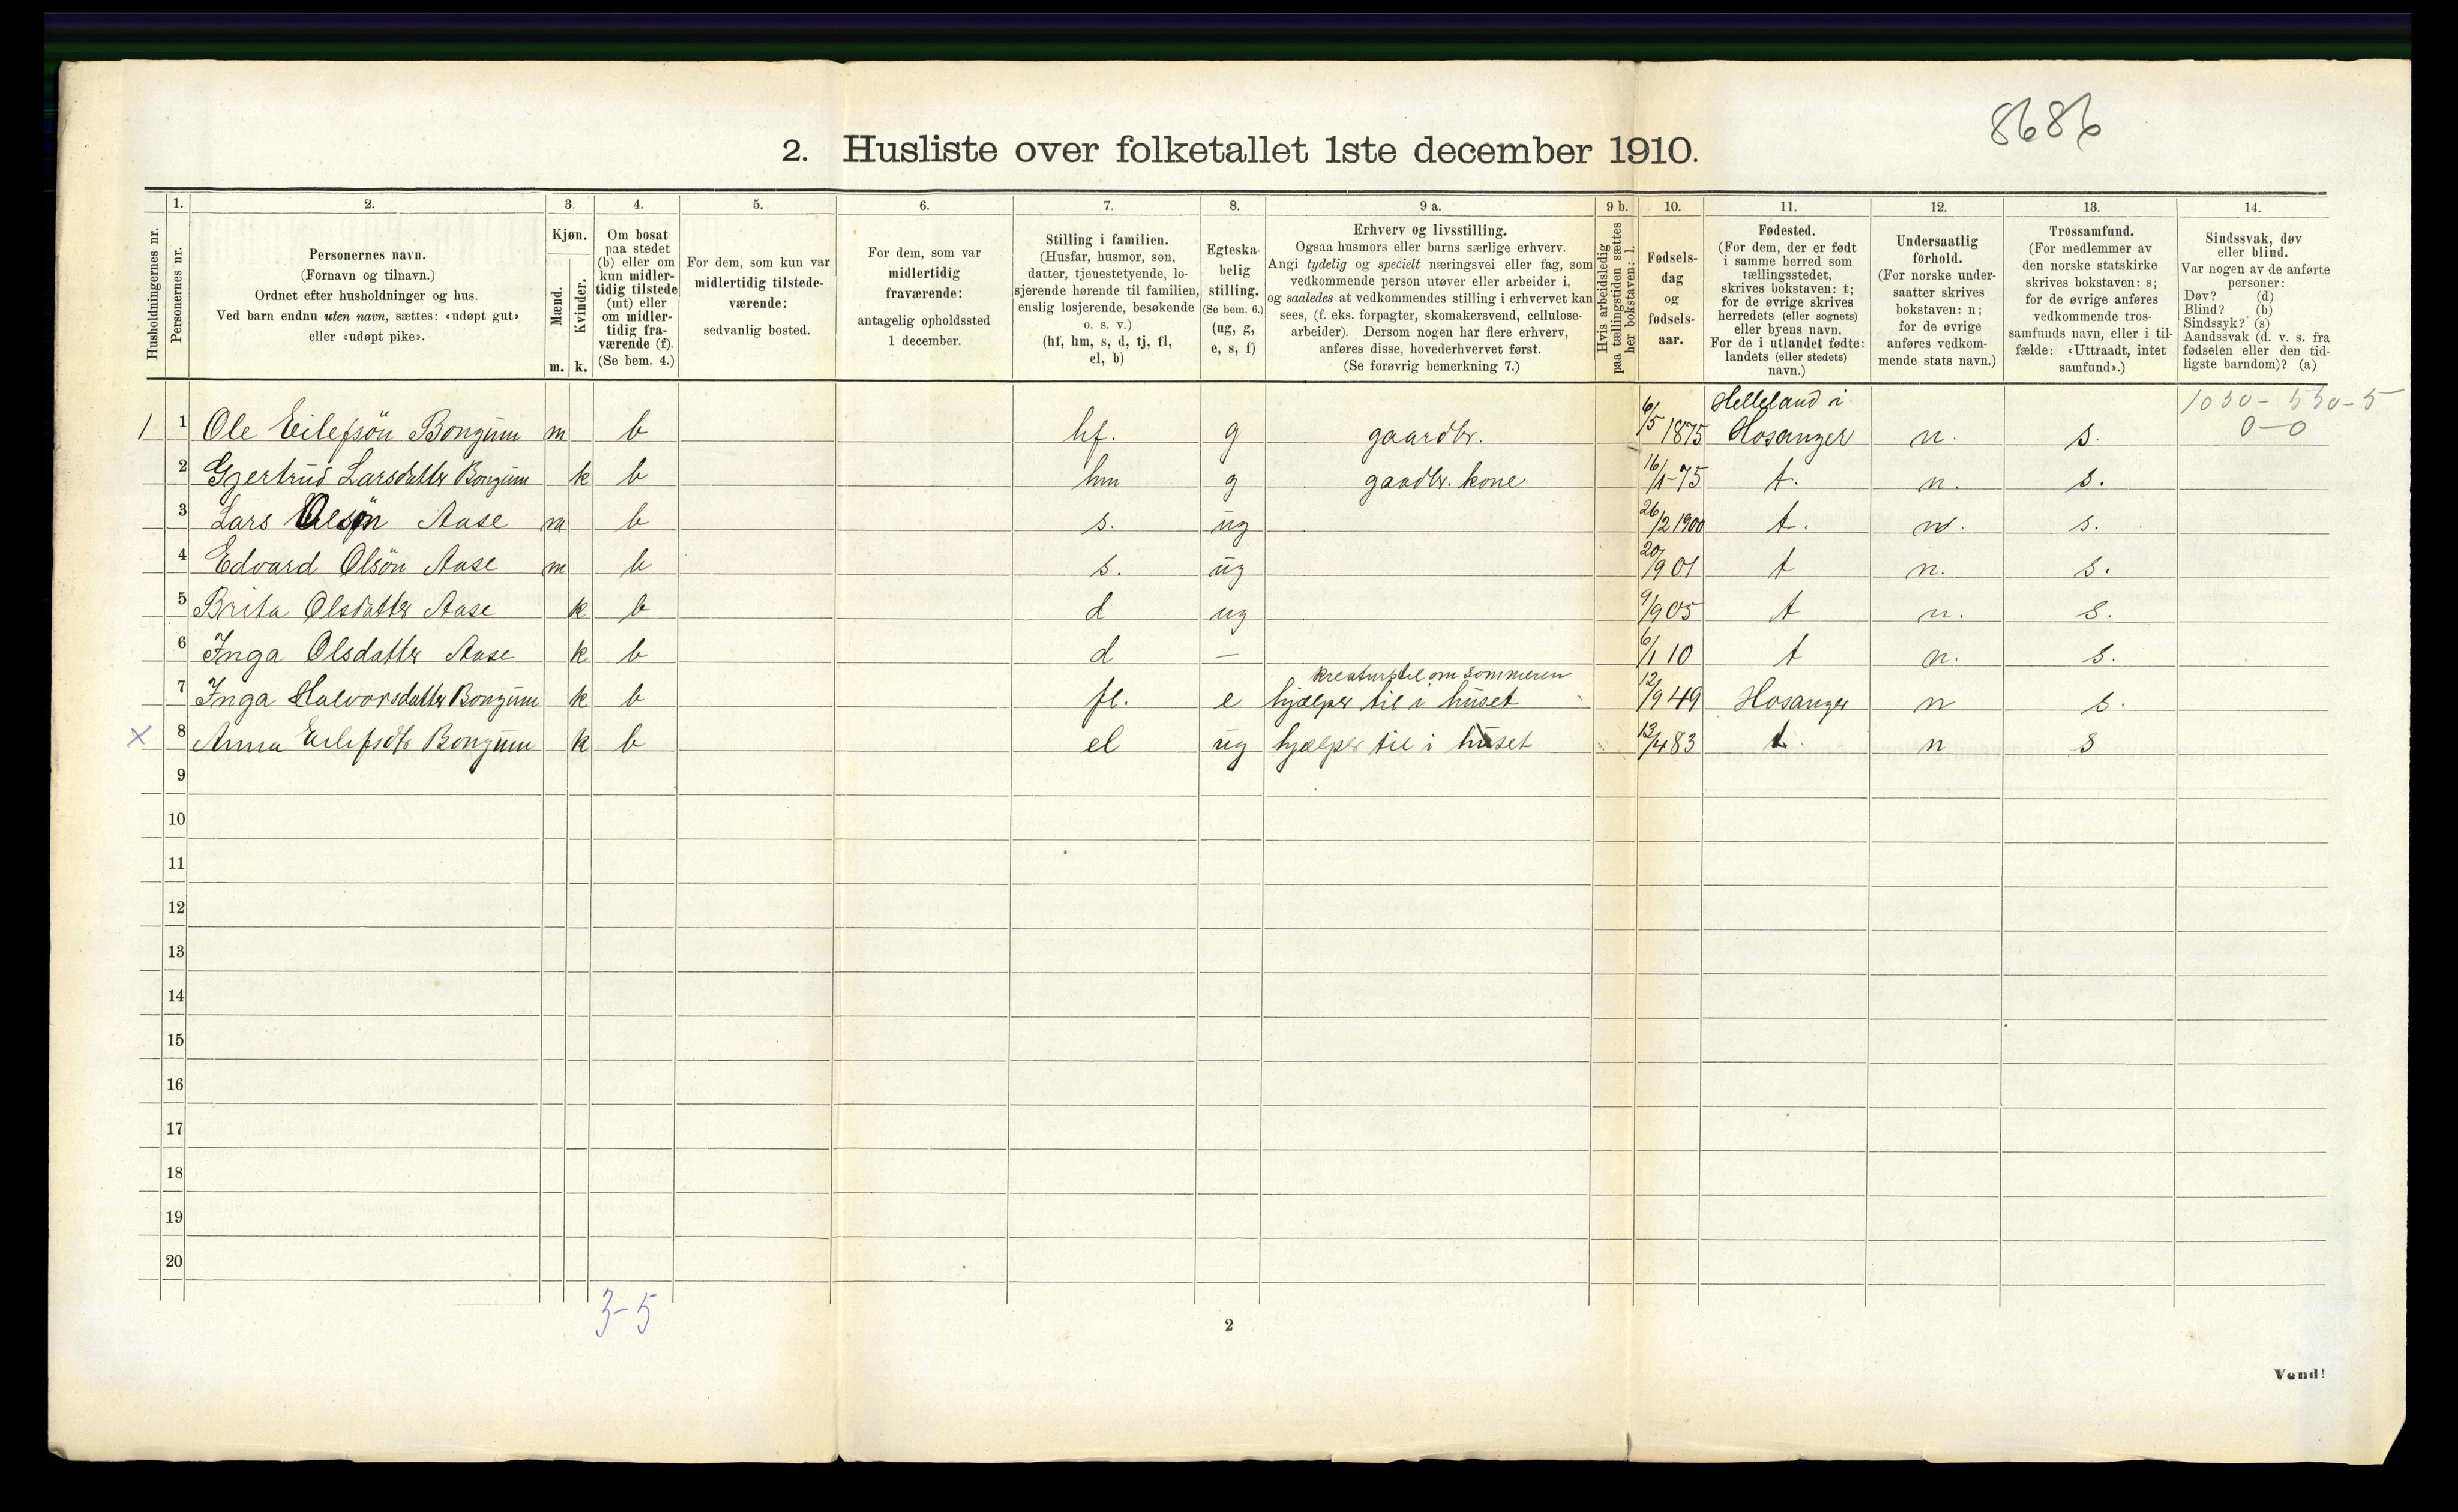 8686
2. Husliste over folketallet 1ste december 1910.
Husholdningernes nr.
1.
Personernes nr.
2.
Personernes navn.
(Fornavn og tilnavn.)
Ordnet efter husholdninger og hus.
Ved barn endnu uten navn, sættes: «udøpt gut»
eller «udøpt pike».
3.
Kjøn.
Mænd.
Kvinder.
m. k.
4.
Om bosat
paa stedet
(b) eller om
kun midler-
tidig tilstede
(mt) eller
om midler-
tidig fra-
værende (f).
(Se bem. 4.)
5.
For dem, som kun var
midlertidig tilstede-
værende:
sedvanlig bosted.
6.
For dem, som var
midlertidig
fraværende:
antagelig opholdssted
1 december.
7.
Stilling i familien.
(Husfar, husmor, søn,
datter, tjenestetyende, lo-
sjerende hørende til familien,
enslig losjerende, besøkende
o. s. v.)
(hf, hm, s, d, tj, fl,
el, b)
8.
Egteska-
belig
stilling.
(Se bem. 6.)
(ug, g,
e, s, f)
9 a.
Erhverv og livsstilling.
Ogsaa husmors eller barns særlige erhverv.
Angi tydelig og specielt næringsvei eller fag, som
vedkommende person utøver eller arbeider i,
og saaledes at vedkommendes stilling i erhvervet kan
sees, (f. eks. forpagter, skomakersvend, cellulose-
arbeider). Dersom nogen har flere erhverv,
anføres disse, hovederhvervet først.
(Se forøvrig bemerkning 7.)
9 b.
Hvis arbeidsledig
paa tællingstiden sættes
her bokstaven: l.
10.
Fødsels-
dag
og
fødsels-
aar.
11.
Fødested.
(For dem, der er født
i samme herred som
tællingsstedet,
skrives bokstaven: t;
for de øvrige skrives
herredets (eller sognets)
eller byens navn.
For de i utlandet fødte:
landets (eller stedets)
navn.)
12.
Undersaatlig
forhold.
(For norske under-
saatter skrives
bokstaven: n;
for de øvrige
anføres vedkom-
mende stats navn.)
13.
Trossamfund.
(For medlemmer av
den norske statskirke
skrives bokstaven: s;
for de øvrige anføres
vedkommende tros-
samfunds navn, eller i til-
fælde: «Uttraadt, intet
samfund».)
14.
Sindssvak, døv
eller blind.
Var nogen av de anførte
personer:
Døv? (d)
Blind? (b)
Sindssyk? (s)
Aandssvak (d. v. s. fra
fødselen eller den tid-
ligste barndom)? (a)
Helleland i 1030-530-5
1 1 Ole Eilefsön Bongum m b hf. g gaardbr. 6/5 1875 Hosanger n. s. 0-0
2 Gjertrud Larsdatter Bongum k b hm g gaadbr. kone 16/1-75 t. n. s.
3 Lars Olsön Aase m b s. ug 26/2 1900 t. n. s.
4 Edvard Olsön Aase m b s. ug 20/9 01 t n. s.
5 Brita Olsdatter Aase k b d ug 9/9 05 t n. s.
6 Inga Olsdatter Aase k b d — 6/1 10 t n. s.
kreaturstel om sommeren
7 Inga Halvorsdatter Bongum k b fl. e hjælper til i huset 12/9 49 Hosanger n s.
x 8 Anna Eilefsdtr Bongum k b el ug hjælper til i huset 13/4 83 t n s
9
10
11
12
13
14
15
16
17
18
19
20
3-5
2
Vend!